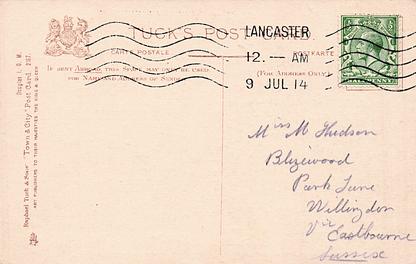 TUCK'S POST CARD.
CARTE POSTALE
POSTKARTE
IF SENT ABROAD, THIS SPACE MAY ONLY BE USED
FOR NAME AND ADDRESS OF SENDER
(FOR ADDRESS ONLY)
LANCASTER
12. — AM
9 JUL 14
Douglas I. O. M.
Raphael Tuck & Sons' "Town & City" Post Card
ART PUBLISHERS TO THEIR MAJESTIES THE KING & QUEEN
Miss M Hudson
Park Lane
Willingdon
Eastbourne
Sussex